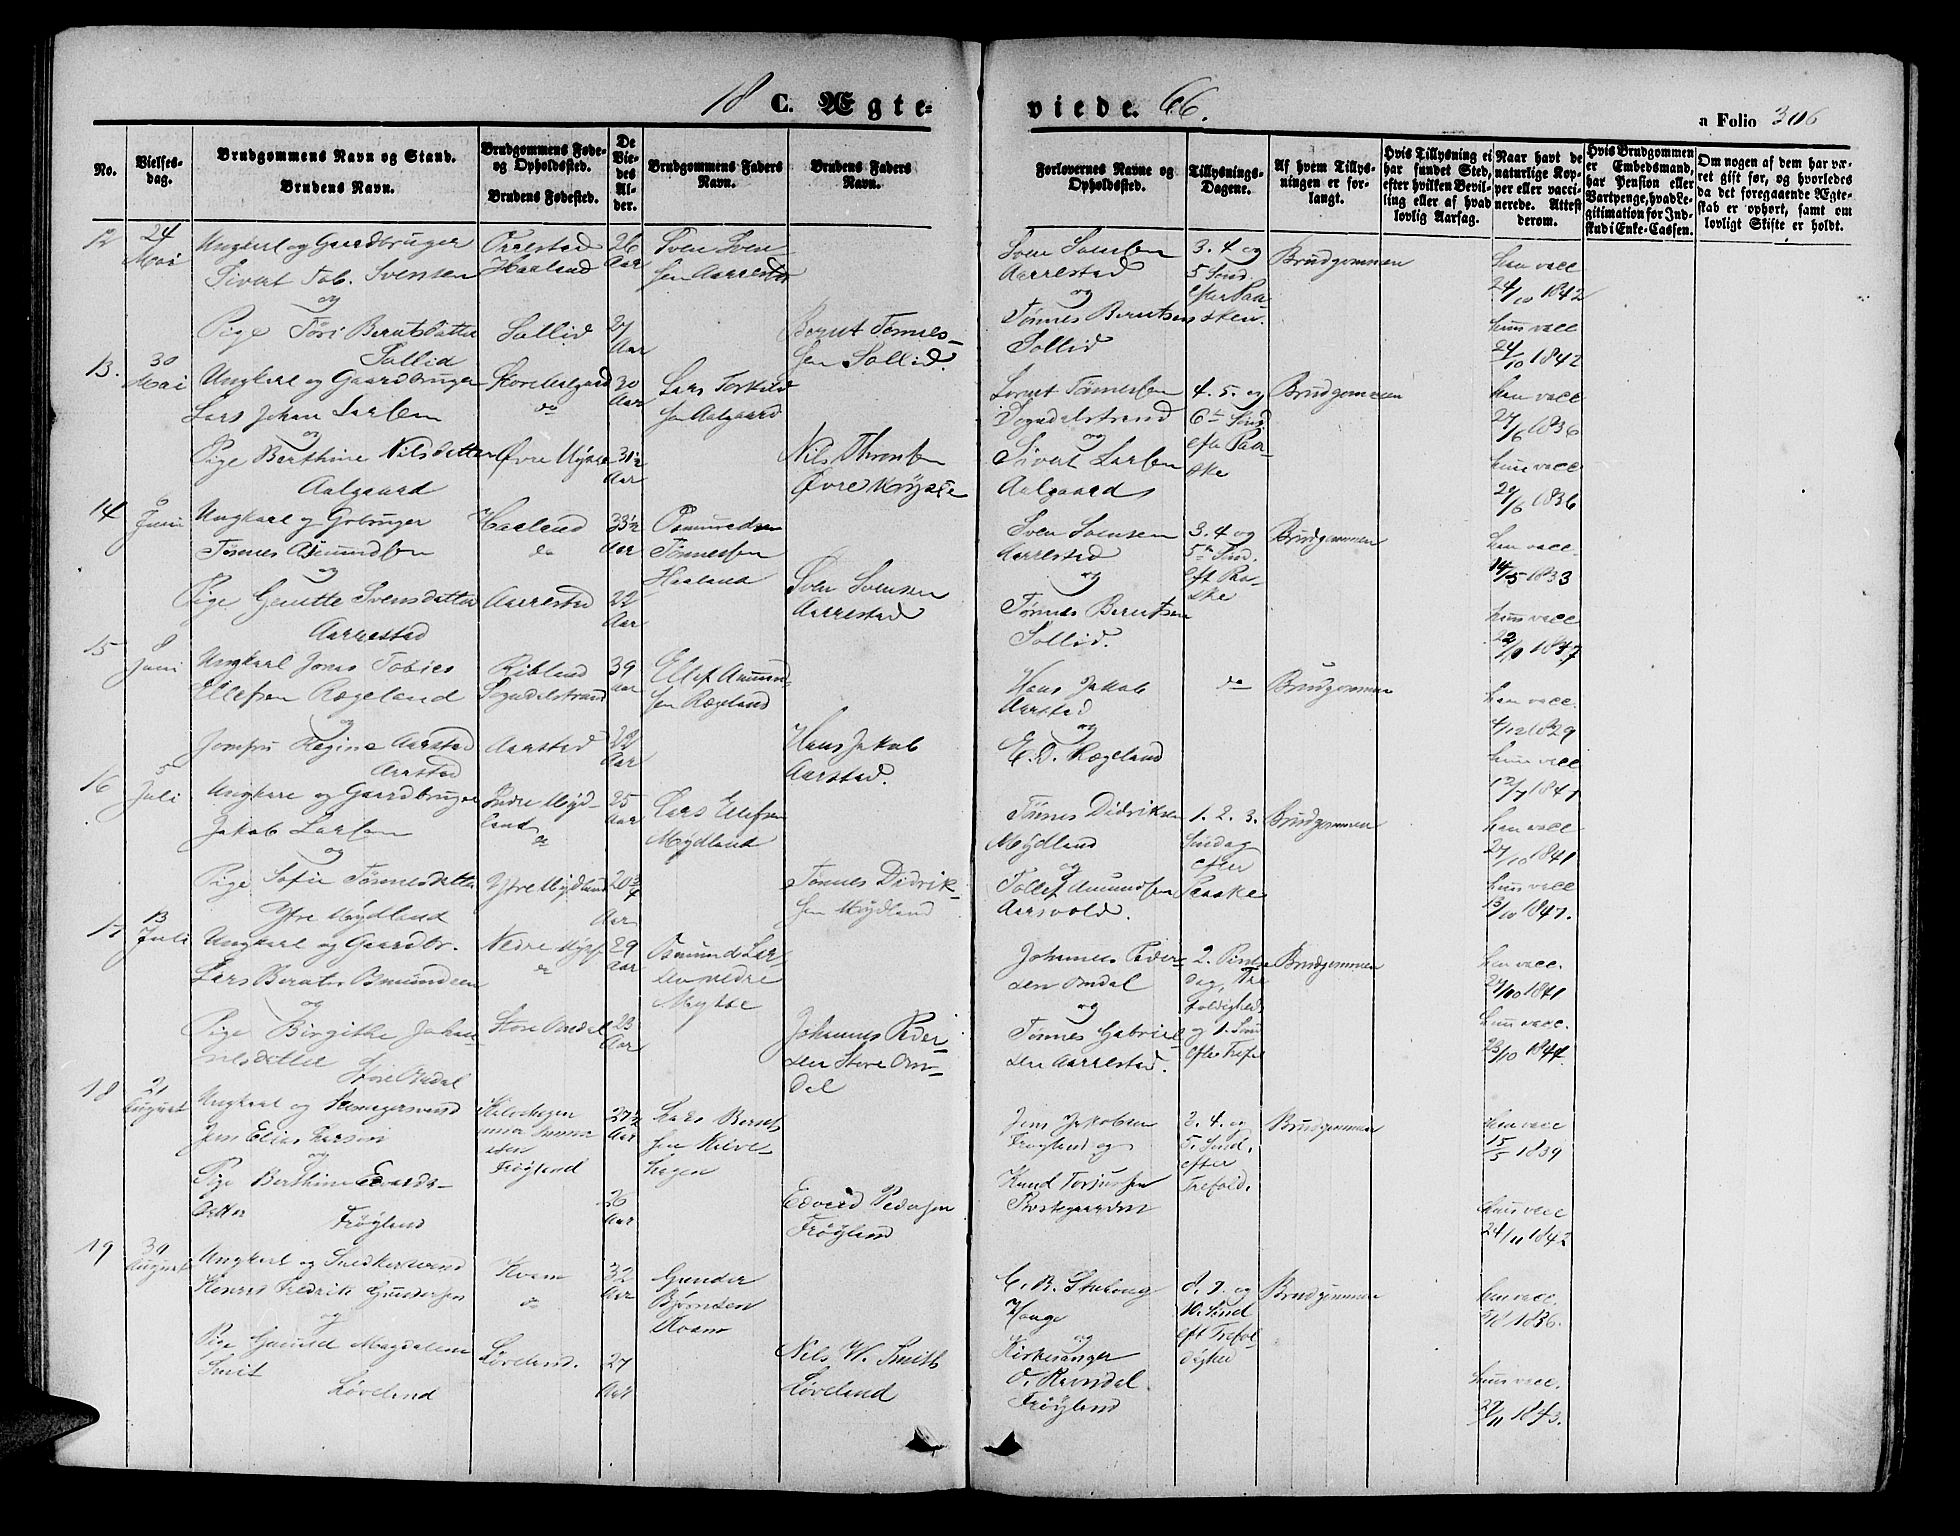 18 C. Ægte-
viede. 66.
a Folio 306
No.
Vielses-
dag.
Brudgommens Navn og Stand.
Brudens Navn.
Brudgommens Føde-
og Opholdssted.
Brudens Fødested.
De
Vie-
des
Al-
der.
Brudgommens Faders
Navn.
Brudens Faders
Navn.
Forlovernes Navne og
Opholdssted.
Tillysnings-
Dagene.
Af hvem Tillys-
ningen er for-
langt.
Hvis Tillysning ei
har fundet Sted,
efter hvilken Bevil-
ling eller af hvad
lovlig Aarsag.
Naar havt de
naturlige Kop-
per eller vacci-
nerede. Attest
derom.
Hvis Brudgommen
er Embedsmand,
har Pension eller
Vartpenge, hvad Le-
gitimation for Ind-
skud i Enke-Cassen.
Om nogen af dem har væ-
ret gift før, og hvorledes
da det foregaaende Ægte-
skab er ophørt, samt om
lovligt Skifte er holdt.
12
24
Mai
Ungkarl og Gaardbruger
Sivert Tob. Svensen
og
Pige Töri Berntsdatter
Sollid
Aarestad
Haaland
Sollid
26
Aar
27
Aar
Sven Sven
sen Aarrestad
Bernt Tønnes-
sen Sollid.
Sven Svensen
Aarrestad
og
Tønnes Berntsen
Sollid
3. 4 og
5 Sönd.
efter Paa-
sken.
Brudgommen
han vacc
24/10 1842
hun vacc
24/10 1842
13.
30
Mai
Ungkarl og Gaardbruger
Lars Johan Larsen
og
Pige Berthine Nilsdatter
Aalgaard
Store Aalgaard
do
Øvre
30
Aar
31½
Aar
Lars Torkild
sen Aalgaard
Nils Thomsen
Øvre
Bernt Tönnessen
Sogndalstrand
og
Sivert Larsen
Aalgaard
4. 5. og
6te Sönd
efter Paa-
ske
Brudgommen
han vacc
27/6 1836
hun vacc
29/6 1836
14
8
Juni
Ungkarl og Gbruger
Tønnes Asmundsen
og
Pige Gunette Svensdatter
Aarrestad
Haaland
do
Aarrestad
33½
Aar
22
Aar
Asmund
Tönnessen
Haaland
Sven Svensen
Aarrestad
Sven Svensen
Aarrestad
og
Tønnes Berntsen
Sollid.
3. 4 og
5te Sönd.
eft Paa-
ske
Brudgommen
han vacc.
14/5 1833
hun vacc
22/10 1847
15
8
Juni
Ungkarl Jonas Tobias
Ellefsen Rægeland
og
Jomfru Regine Aarstad
Aarstad
Sogndalstrand
Aarstad
39
Aar
22
Aar
Ellef Amund-
sen Rægeland
Hans Jakob
Aarstad.
Hans Jakob
Aarstad
og
E. D. Rægeland
do
Brudgommen
han vacc.
4/12 1829
hun vacc
12/7 1847
16
5
Juli
Ungkarl og Gaardbruger
Jakob Larsen
og
Pige Sofie Tønnesdatter
Ytre Mydland
Indre Myd-
land
do
Ytre Mydland
25
Aar
20¾
Aar
Lars Ellefsen
Mydland
Tønnes Didrik-
sen Mydland
Tønnes Didriksen
Mydland
og
Tollef Amundsen
Aarsvold.
1. 2. 3.
Söndag
efter
Paaske
Brudgommen
han vacc
27/10 1841
hun vacc
13/10 1847.
17
13
Juli
Ungkarl og Gaardbr.
Lars Berntsen Asmundsen
og
Pige Birgithe Johan-
nesdatter
Store Amdal
Nedre
do
Store Amdal
29
Aar
23
Aar
Asmund Lar-
sen nedre
Johannes Peder-
sen Store Am-
dal
Johannes Peder-
sen Amdal
og
Tønnes Gabriel-
sen Aarrestad.
2. Pintse-
dag, Tre-
foldighed,
og 1. Sönd
efter Trefol
Brudgommen
han vacc.
27/10 1841
hun vacc.
23/10 1844.
18
21
August
Ungkarl og
Jens Elias Larsen
og
Pige Berthine Edvards-
datter
Frøyland
Kilvehagen
Frøyland
27½
Aar
26
Aar
Lars Bernt
sen Kilve-
hagen
Edvard Pedersen
Frøyland
Jens Jakobsen
Frøyland og
Knud Torjussen
Prestegaarden
3. 4. og
5. Sönd.
efter
Trefold.
Brudgommen
han vacc
15/5 1839
hun vacc
24/11 1842
19
30
August
Ungkarl og Snedkersvend
Konrad Fredrik Gundersen
og
Pige Gunild Magdalene
Smit
Løvland
Kvam
do
Løvland.
32
Aar
27
Aar
Gunder
Bjørnsen
Kvam
Nils W. Smith
Løvland
C. B. Stuhoug
Hauge
og
Kirkesanger
O. Ramdal
Frøyland
8. 9. og
10. Sönd
eft Trefol-
dighed
Brudgommen
han vacc.
1836.
hun vacc.
29/11 1843.